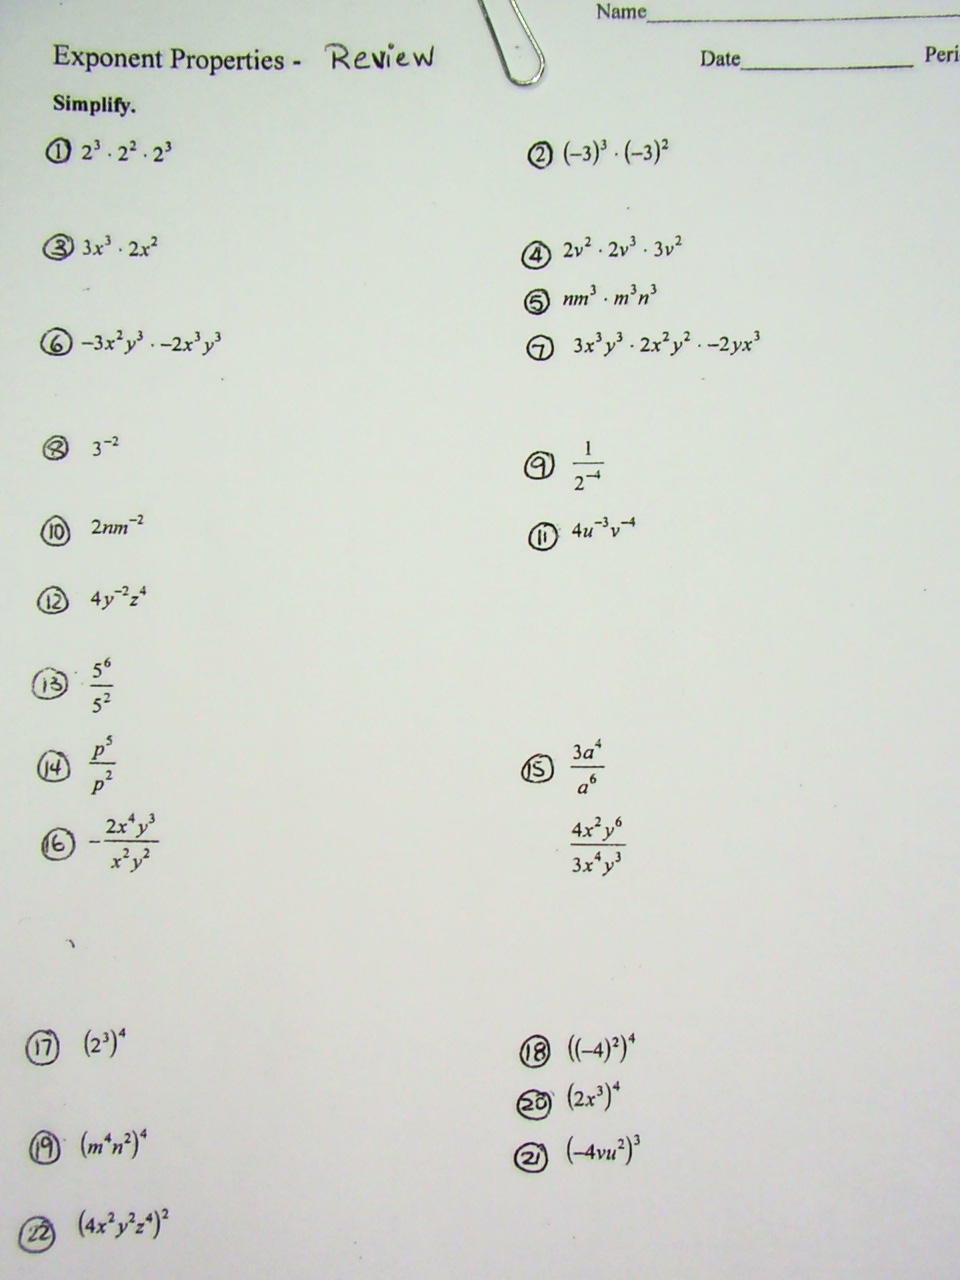 Name
Exponent Properties - Review
Date Peri
Simplify.
① 2³ · 2² · 2³
② (−3)³ · (−3)²
③ 3x³ · 2x²
④ 2v² · 2v³ · 3v²
⑤ nm³ · m³n³
⑥ −3x²y³ · −2x³y³
⑦ 3x³y³ · 2x²y² · −2yx³
⑧ 3⁻²
⑨ 1/2⁻⁴
⑩ 2nm⁻²
⑪ 4u⁻³v⁻⁴
⑫ 4y⁻²z⁴
⑬ 5⁶/5²
⑭ p⁵/p²
⑮ 3a⁴/a⁶
⑯ −2x⁴y³/x²y²
4x²y⁶/3x⁴y³
⑰ (2³)⁴
⑱ ((−4)²)⁴
⑳ (2x³)⁴
⑲ (m⁴n²)⁴
㉑ (−4vu²)³
㉒ (4x²y²z⁴)²